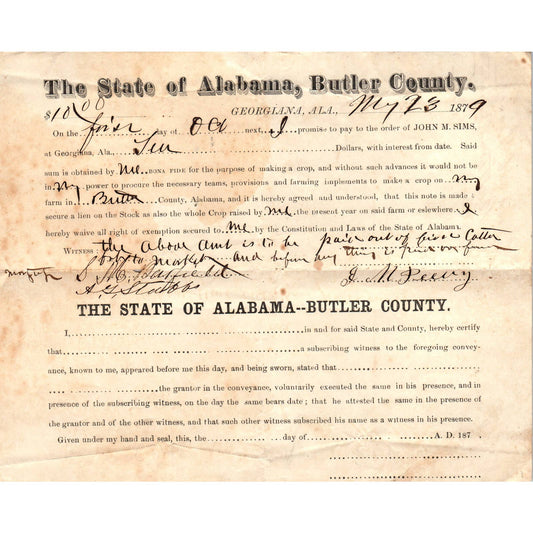 The State of Alabama, Butler County.
$10 00 GEORGIANA, ALA., May 23 1879
On the first day of Oct next, I promise to pay to the order of JOHN M. SIMS,
at Georgiana, Ala. Ten Dollars, with interest from date. Said
sum is obtained by me BONA FIDE for the purpose of making a crop, and without such advances it would not be
in my power to procure the necessary teams, provisions and farming implements to make a crop on my
farm in Butler County, Alabama, and it is hereby agreed and understood, that this note is made
secure a lien on the Stock as also the whole Crop raised by me the present year on said farm or elsewhere I
hereby waive all right of exemption secured to me by the Constitution and Laws of the State of Alabama.
WITNESS: the above amt is to be paid out of first Cotton
to market and before any thing is
J. M. Peevy
THE STATE OF ALABAMA--BUTLER COUNTY.
I, in and for said State and County, hereby certify
that a subscribing witness to the foregoing convey-
ance, known to me, appeared before me this day, and being sworn, stated that
the grantor in the conveyance, voluntarily executed the same in his presence, and in
presence of the subscribing witness, on the day the same bears date; that he attested the same in the presence of
the grantor and of the other witness, and that such other witness subscribed his name as a witness in his presence.
Given under my hand and seal, this, the day of A. D. 187